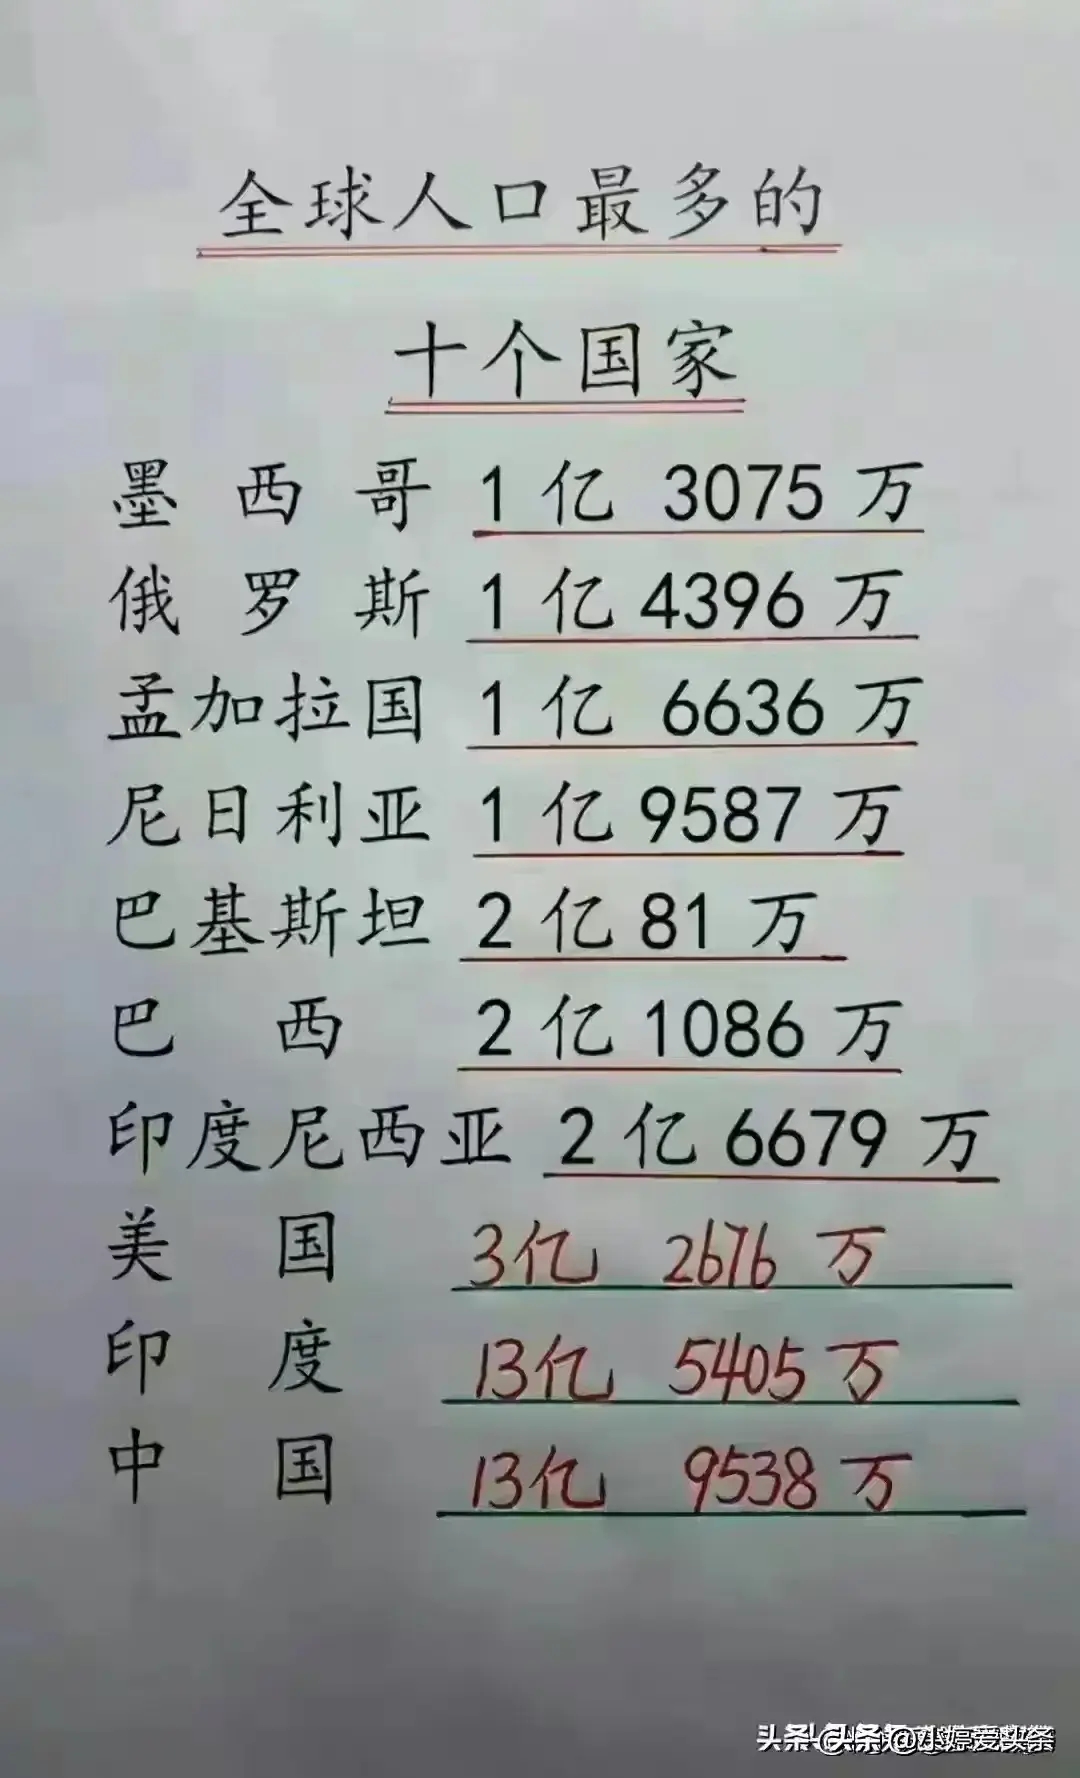 全球人口最多的
十个国家
墨西哥 1亿 3075万
俄罗斯 1亿4396万
孟加拉国 1亿 6636万
尼日利亚 1亿9587万
巴基斯坦 2亿81万
巴西 2亿1086万
印度尼西亚 2亿6679万
美国 3亿 2676万
印度 13亿 5405万
中国 13亿 9538万
头条 @小婷爱头条